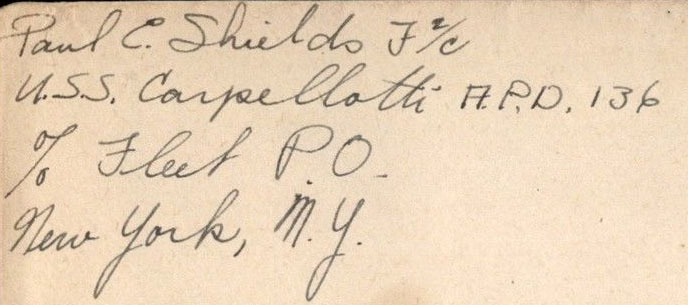 Paul E. Shields F 2/c
U.S.S. Carpellotti A.P.D. 136
% Fleet P.O.
New York, N.Y.